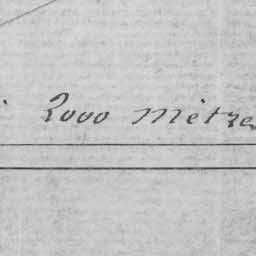 2000 mètres